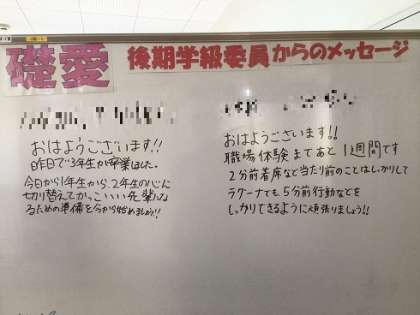 礎愛
後期学級委員からのメッセージ
おはようございます!!
昨日で3年生が卒業しました。
今日から1年生から、2年生の心に
切り替えてかっこいい先輩にな
るための準備を今から始めましょう!!
おはようございます!!
職場体験まであと1週間です
2分前着席など当たり前のことはしっかりして
ラグーナでも5分前行動などを
しっかりできるように頑張りましょう!!